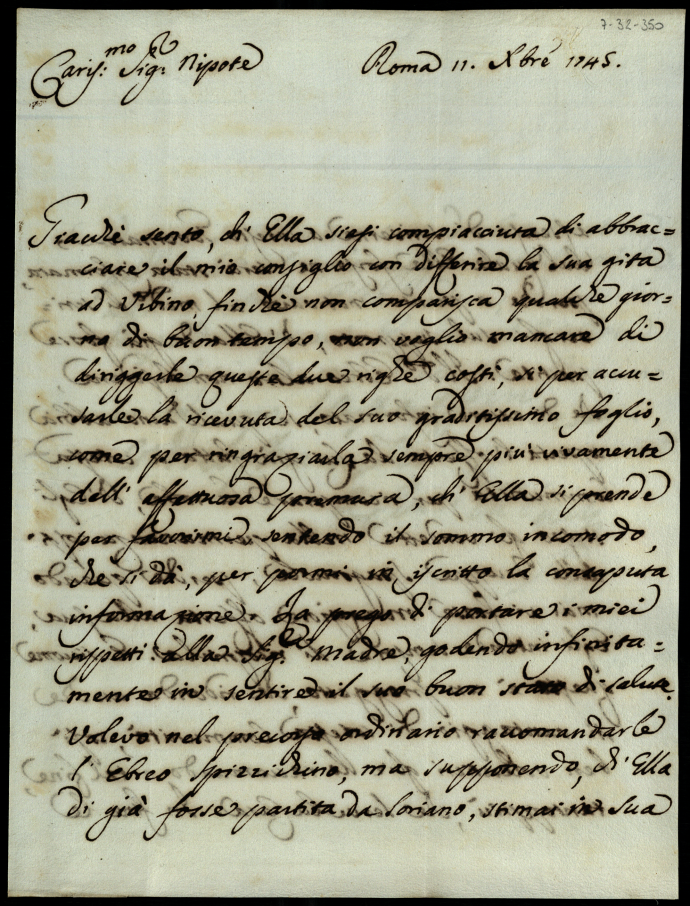 7-32-350
Cariss.mo Sig.r Nipote Roma 11. Xbre 1745.
Giacchè sento, ch' Ella siasi compiacciuta di abbrac=
ciare il mio consiglio con differire la sua gita
ad Vibino, finchè non comparisca qualche gior=
no di buon tempo, non voglio mancare di
diriggerle queste due righe costì, sì per accu=
sarle la ricevuta del suo graditissimo foglio,
come per ringraziarla sempre più vivamente
dell' affettuosa premura, ch' Ella si prende
per favorirmi sentendo il sommo incomodo,
che si dà, per pormi in iscritto la consaputa
informazione. La prego di portare i miei
rispetti alla Sig.ra Madre, godendo infinita=
mente in sentire il suo buon stato di salute.
Volevo nel precorso ordinario raccomandarle
l' Ebreo Spizzichino, ma supponendo, ch' Ella
di già fosse partita da Soriano, stimai in sua